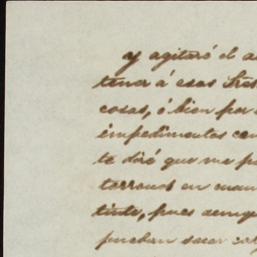 y agitaré el a
tener á esas Sres
cosas, ó bien por
impedimentos con
te diré que me p
terrenos en cuan
tinto, pues aunq
pueban sacar